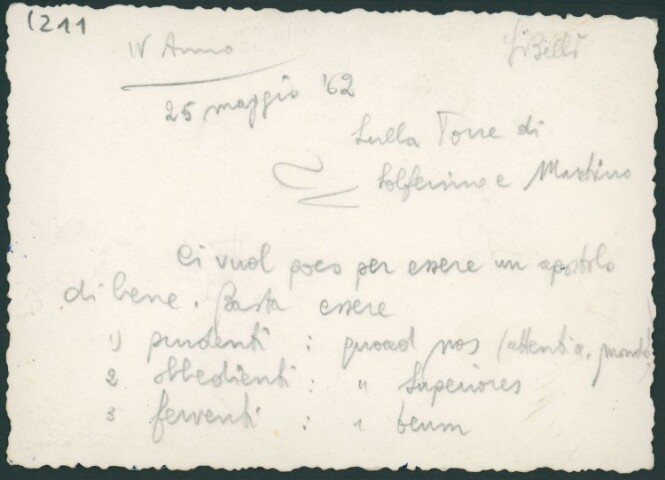 (211
IV Anno
25 maggio '62
Sulla Torre di
Solferino e Martino
Ci vuol poco per essere un apostolo
di bene. Basta essere
1) prudenti : quoad nos (attenti a. mondo)
2 obbedienti : " Superiores
3 ferventi : " Deum